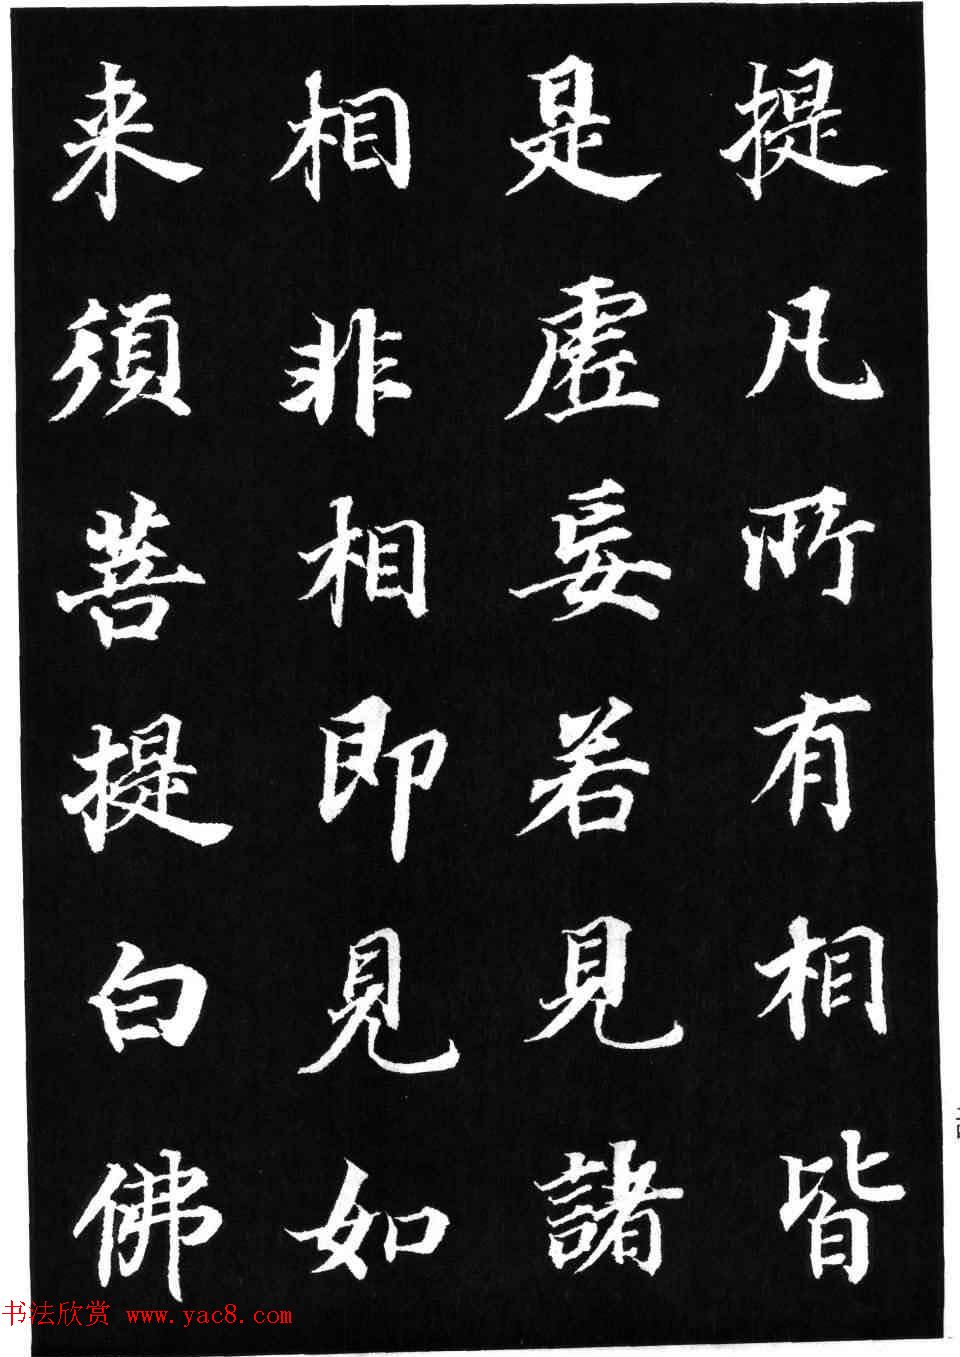 提凡所有相皆
是虛妄若見諸
相非相即見如
来須菩提白佛
书法欣赏 www.yac8.com